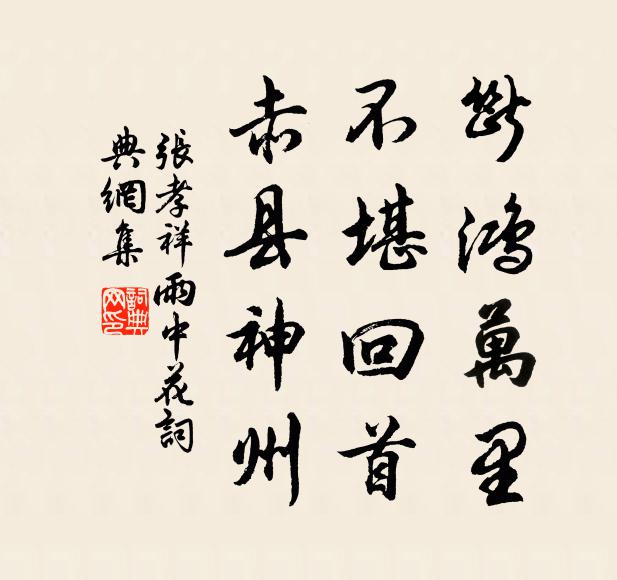 斷鴻萬里
不堪回首
赤县神州
張孝祥雨中花詞
典網集
詞典网印